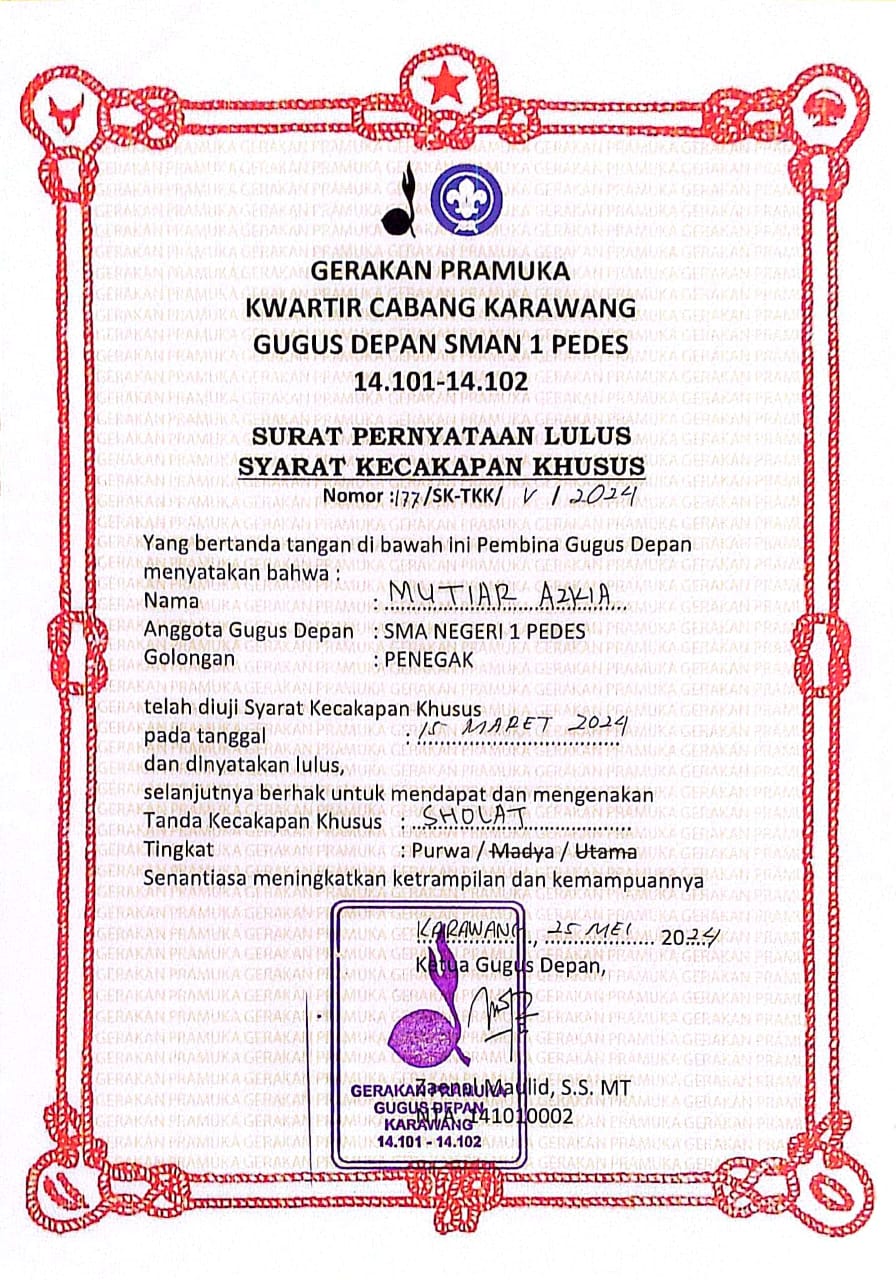 GERAKAN PRAMUKA
KWARTIR CABANG KARAWANG
GUGUS DEPAN SMAN 1 PEDES
14.101-14.102
SURAT PERNYATAAN LULUS
SYARAT KECAKAPAN KHUSUS
Nomor :177/SK-TKK/ V / 2024
Yang bertanda tangan di bawah ini Pembina Gugus Depan
menyatakan bahwa :
Nama : MUTIAR AZKIA
Anggota Gugus Depan : SMA NEGERI 1 PEDES
Golongan : PENEGAK
telah diuji Syarat Kecakapan Khusus
pada tanggal : 15 MARET 2024
dan dinyatakan lulus,
selanjutnya berhak untuk mendapat dan mengenakan
Tanda Kecakapan Khusus : SHOLAT
Tingkat : Purwa / Madya / Utama
Senantiasa meningkatkan ketrampilan dan kemampuannya
KARAWANG, 25 MEI 2024
Ketua Gugus Depan,
Zaenal Maulid, S.S. MT
NTA. 141010002
GERAKAN PRAMUKA
GUGUS DEPAN
KARAWANG
14.101 - 14.102